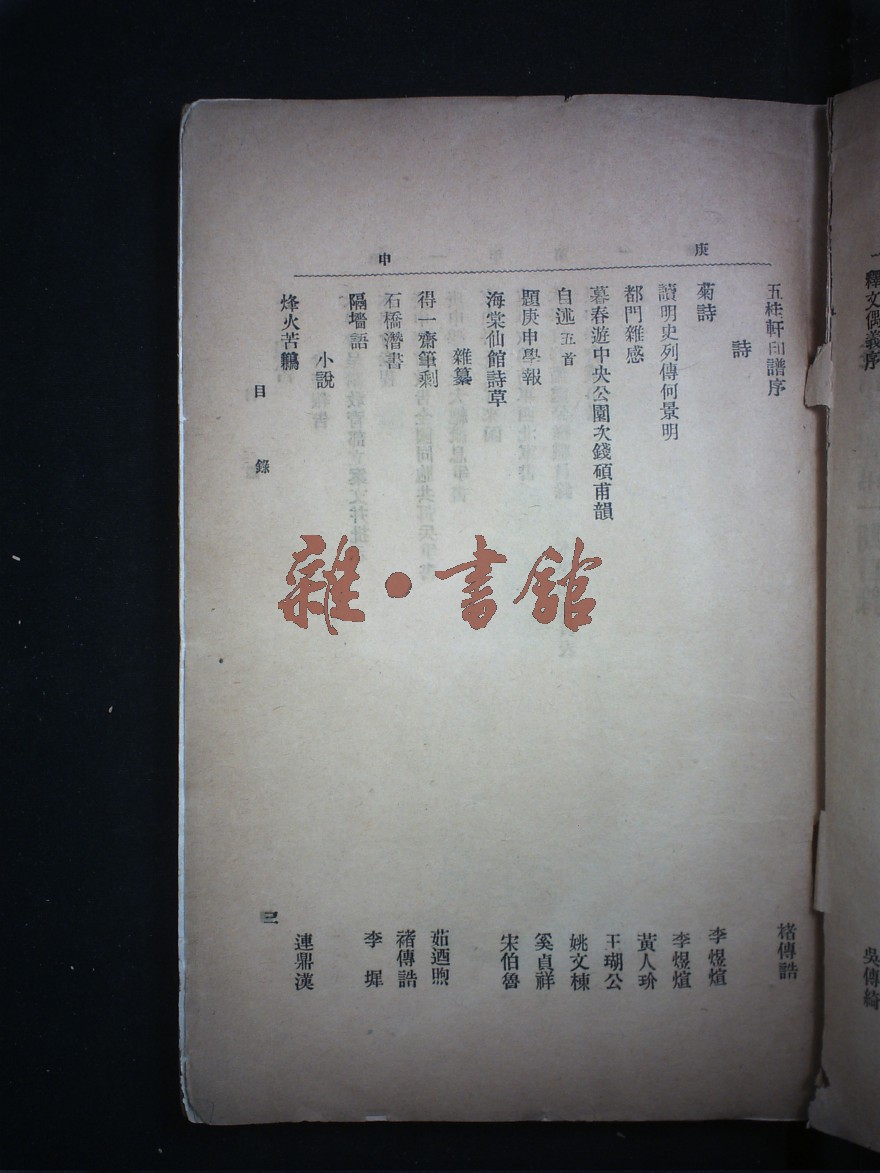 釋文偶義序 吳傳綺
庚 申
五桂軒印譜序 褚傳誥
詩
菊詩 李煜煊
讀明史列傳何景明 李煜煊
都門雜感 黃人玠
暮春遊中央公園次錢碩甫韻 王瑚公
自述五首 姚文棟
題庚申學報 奚貞祥
海棠仙館詩草 宋伯魯
雜纂
得一齋筆剩 茹迺煦
石橋潛書 褚傳誥
隔墻語 李墀
小說
烽火苦鶼 連鼎漢
目錄 三
雜·書館